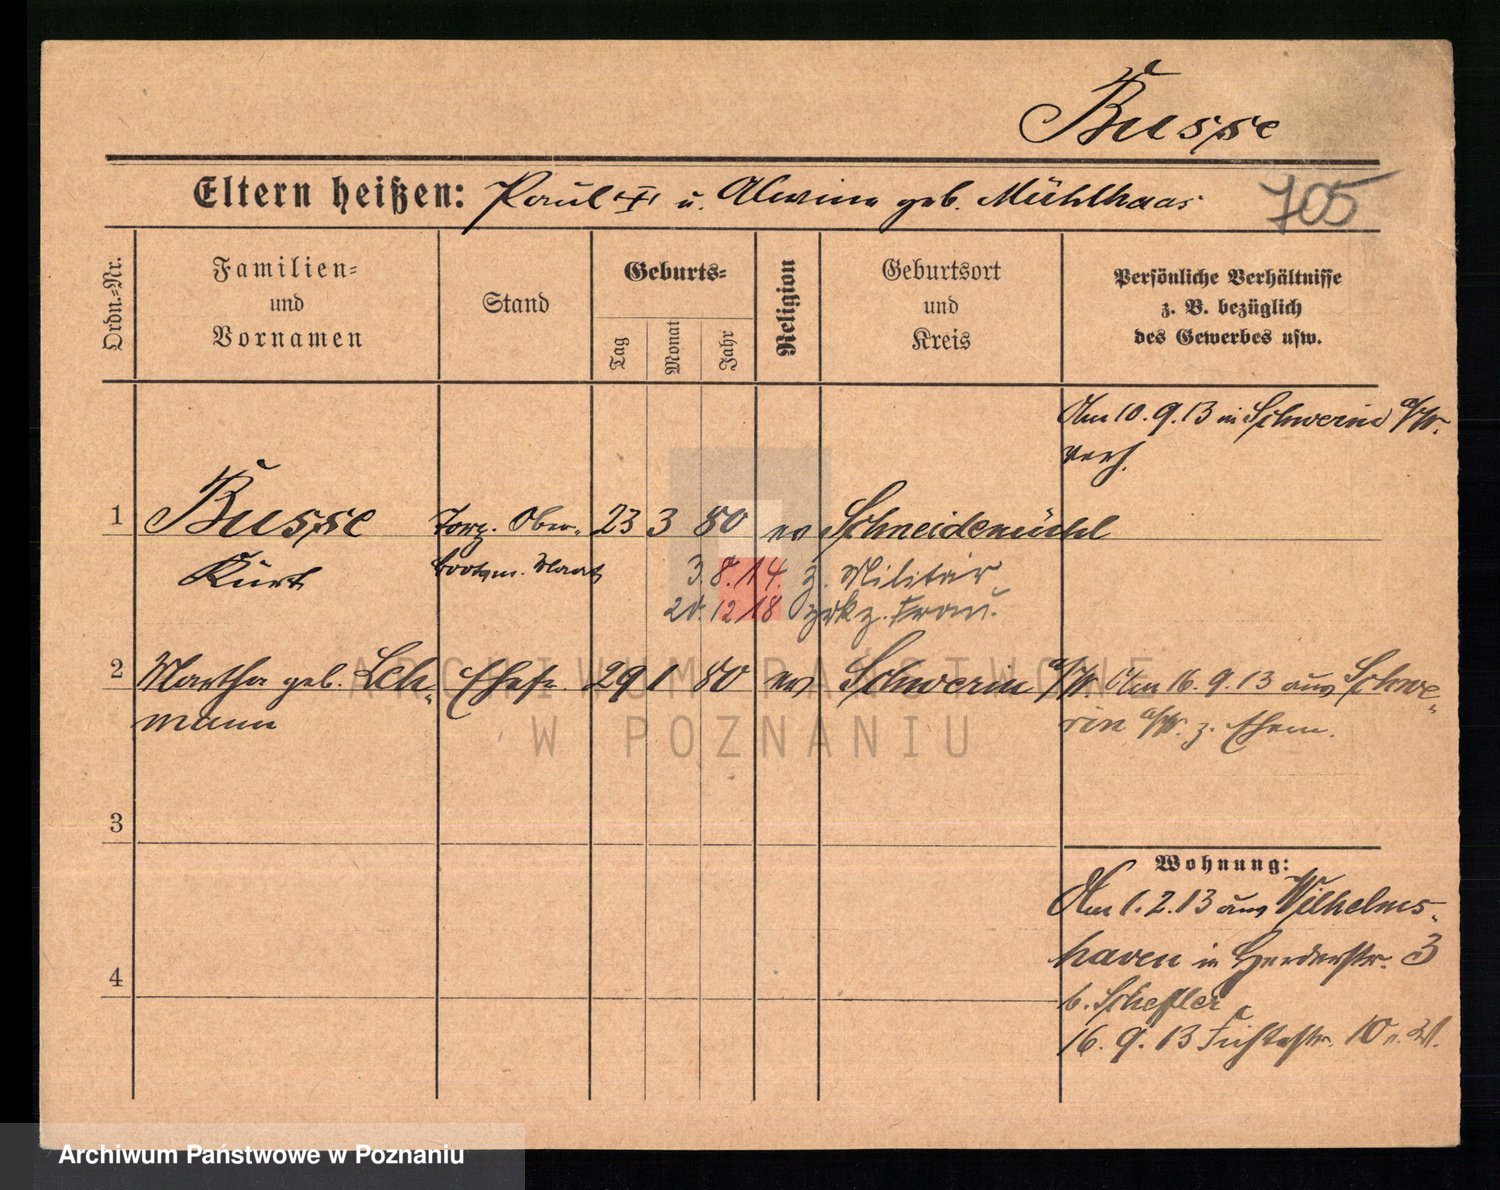 Busse
Eltern heißen: Paul I u. Alwine geb. Mühlhaas
705
Ordn.-Nr.
Familien-
und
Vornamen
Stand
Geburts-
Tag
Monat
Jahr
Religion
Geburtsort
und
Kreis
Persönliche Verhältnisse
z. B. bezüglich
des Gewerbes usw.
Am 10.9.13 in Schwerin a/W.
verh.
1 Busse Torp. Ober- 23 3 80 ev Schneidemühl
Kurt bootsm. Maat 3.8.14. z. Militär
20.12.18 zrkz. Frau.
2 Martha geb. Leh- Ehefr. 29 1 80 ev Schwerin a/W. Am 16.9.13 aus Schwe-
mann rin a/W. z. Ehem.
3
Wohnung:
Am 1.2.13 aus Wilhelms-
haven in Herderstr. 3
4
b. Schefler
16.9.13 Fichtestr. 10
ARCHIWUM PAŃSTWOWE
W POZNANIU
Archiwum Państwowe w Poznaniu